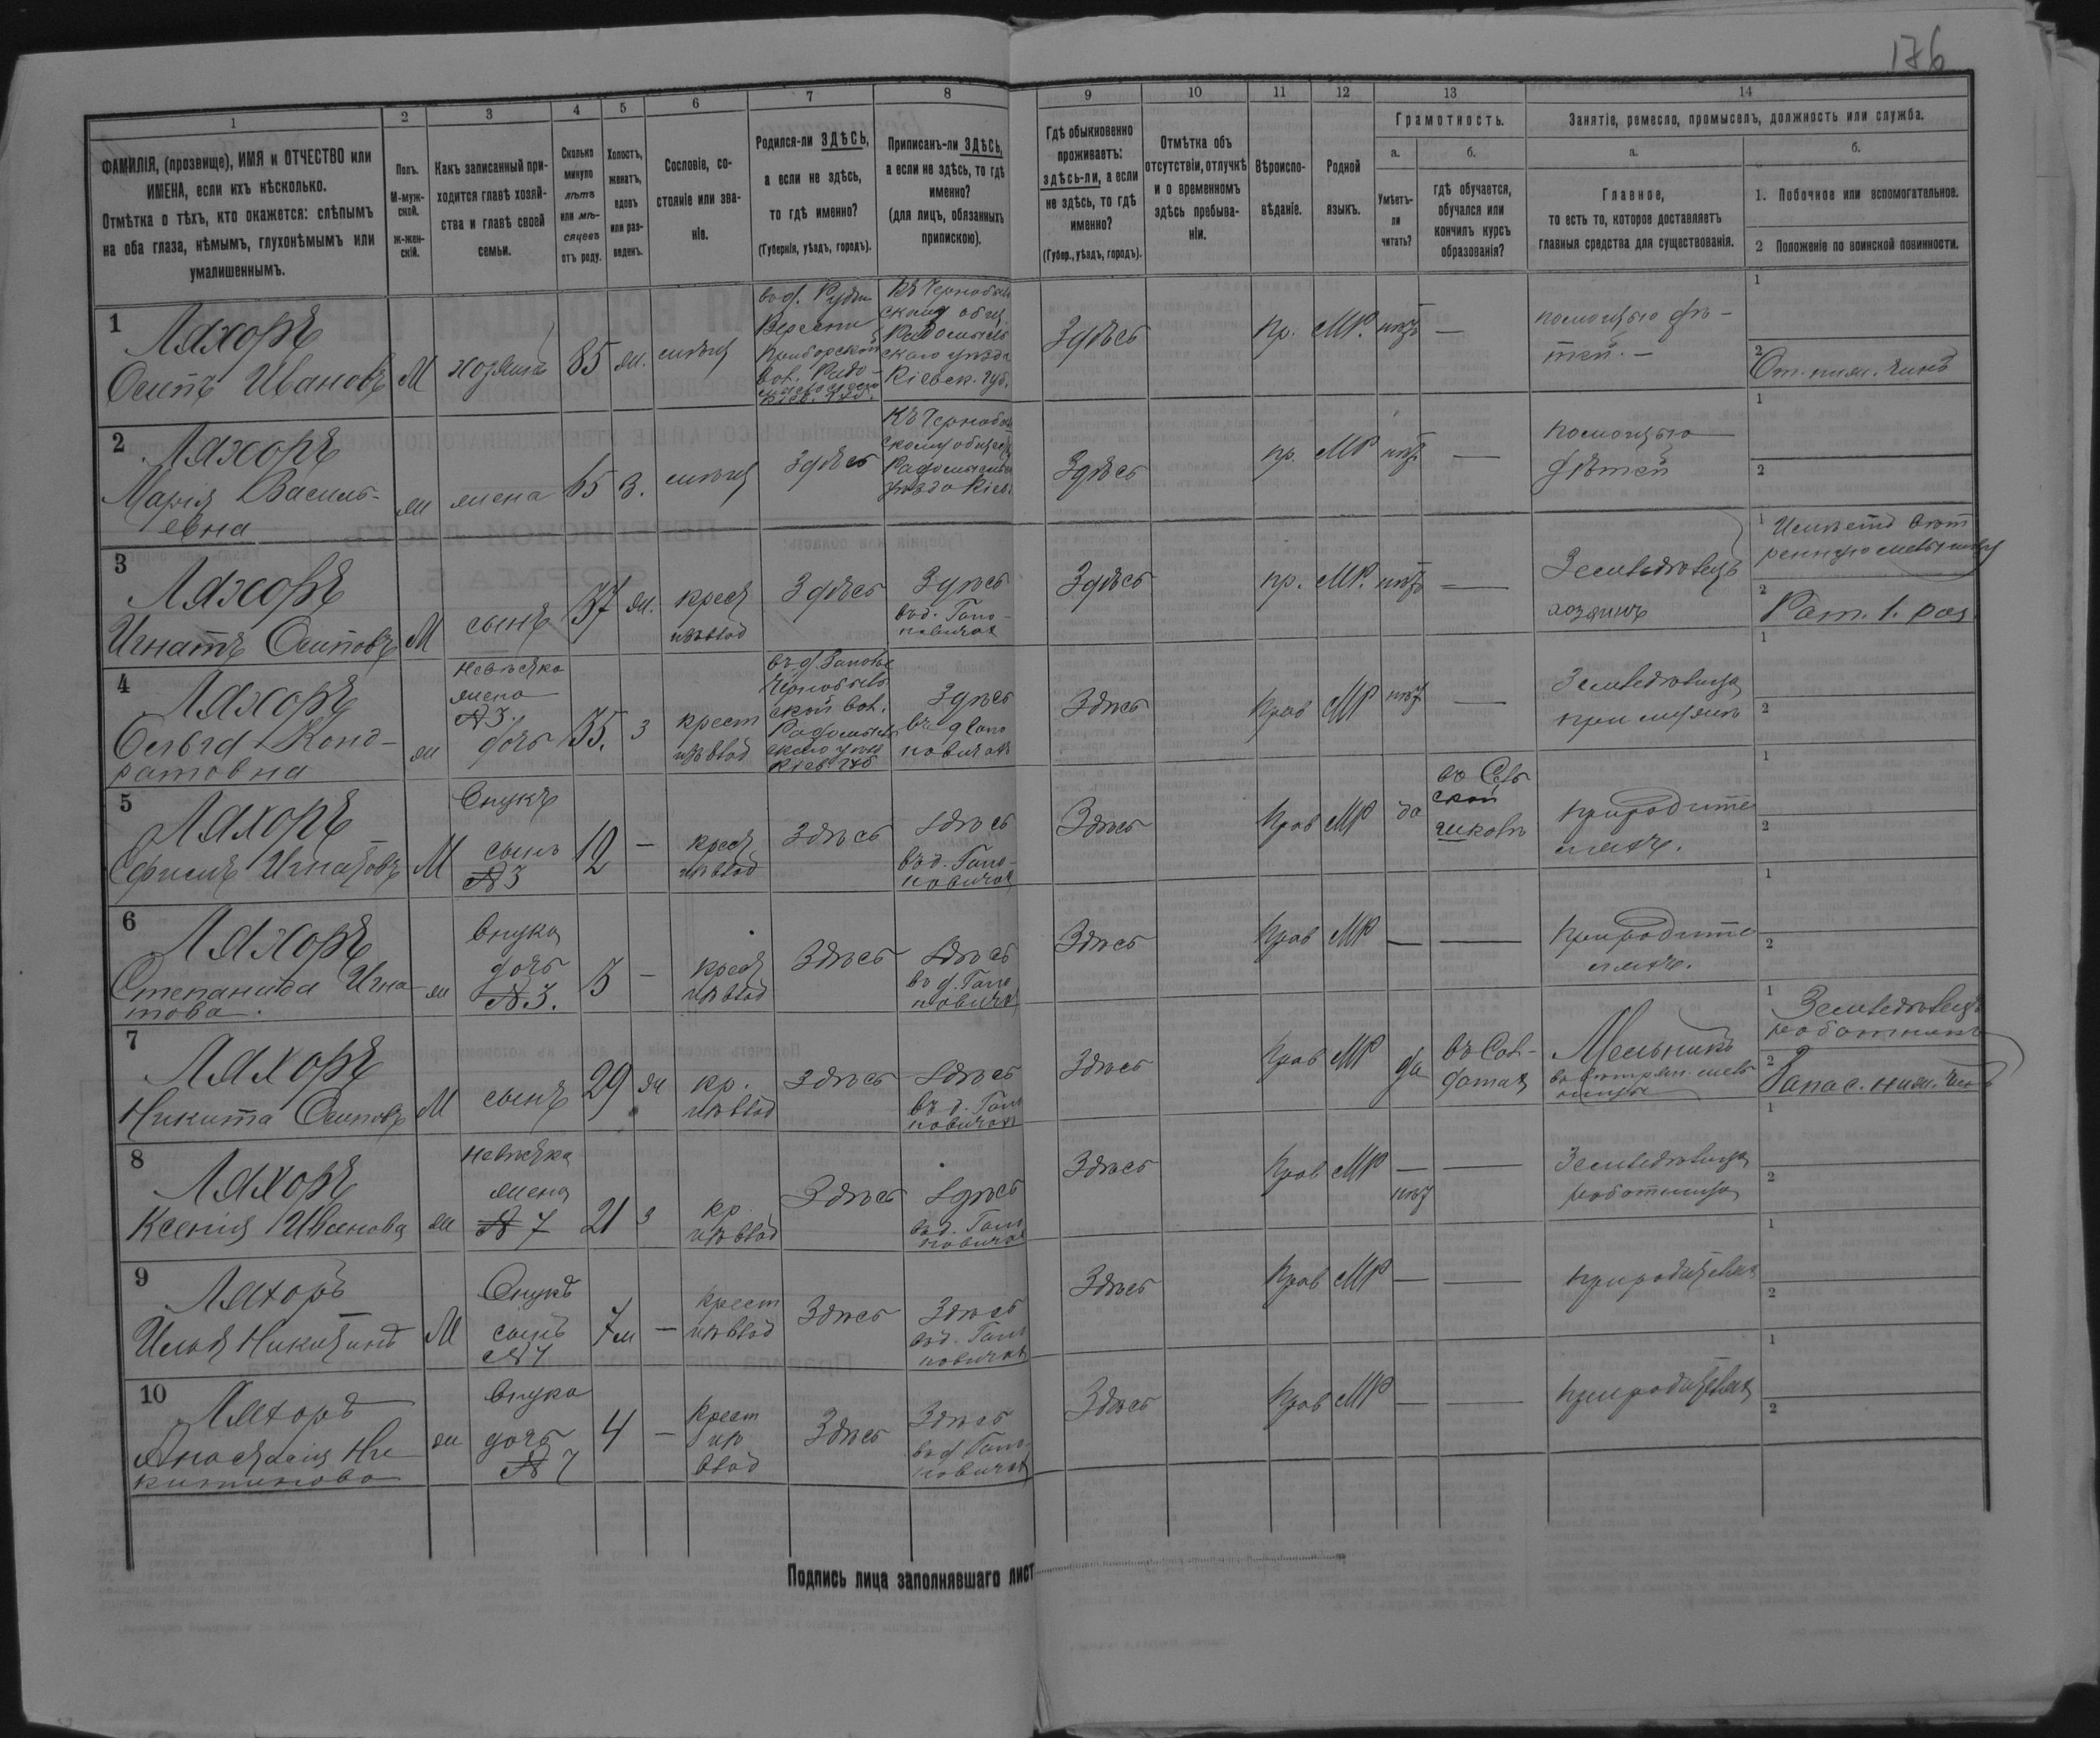 176
1
2
3
4
5
6
7
8
9
10
11
12
13
14
ФАМИЛІЯ, (прозвище), ИМЯ и ОТЧЕСТВО или
ИМЕНА, если ихъ нѣсколько.
Отмѣтка о тѣхъ, кто окажется: слѣпымъ
на оба глаза, нѣмымъ, глухонѣмымъ или
умалишеннымъ.
Полъ.
М-муж-
ской.
ж-жен-
скій.
Какъ записанный при-
ходится главѣ хозяй-
ства и главѣ своей
семьи.
Сколько
минуло
лѣтъ
или мѣ-
сяцевъ
отъ роду.
Холостъ,
женатъ,
вдовъ
или раз-
веденъ.
Сословіе, со-
стояніе или зва-
ніе.
Родился-ли ЗДѢСЬ,
а если не здѣсь,
то гдѣ именно?
(Губернія, уѣздъ, городъ).
Приписанъ-ли ЗДѢСЬ,
а если не здѣсь, то гдѣ
именно?
(для лицъ, обязанныхъ
припискою).
Гдѣ обыкновенно
проживаетъ:
здѣсь-ли, а если
не здѣсь, то гдѣ
именно?
(Губер., уѣздъ, городъ).
Отмѣтка объ
отсутствіи, отлучкѣ
и о временномъ
здѣсь пребыва-
ніи.
Вѣроиспо-
вѣданіе.
Родной
языкъ.
Грамотность.
а.
Умѣетъ-
ли
читать?
б.
гдѣ обучается,
обучался или
кончилъ курсъ
образованія?
Занятіе, ремесло, промыселъ, должность или служба.
а.
Главное,
то есть то, которое доставляетъ
главныя средства для существованія.
б.
1. Побочное или вспомогательное.
2 Положеніе по воинской повинности.
1
Ляхоръ
Осипъ Ивановъ
М
хозяинъ
85
ж.
въ д. Рудни
Вересни
Приборской
вол. Радо-
Къ Чернобыль
скому общ.
Радомысль
скаго уѣзда
Кіевск. губ.
Здѣсь
пр.
МР.
нѣтъ
—
помощью дѣ-
тей. —
1
2
От. ниж. чинъ
2
Ляхоръ
Марія Василь-
евна
ж
жена
65
з.
Здѣсь
Къ Чернобыль
скому общест
Радомысль
уѣзда Кіев.
Здѣсь
пр.
МР
нѣт
—
помощью
дѣтей
1
2
3
Ляхоръ
Игнатъ Осиповъ
М
сынъ
37
ж.
крест
изъ влад
Здѣсь
Здѣсь
въ д. Гапо-
новичах
Здѣсь
пр.
МР.
нѣтъ
—
Земледѣлецъ
хозяинъ
1
2
Рат. 1. раз
4
Ляхоръ
Ольга Конд-
ратовна
ж
невѣстка
жена
№ 3.
дочь
35.
з
крест
изъ влад
Чернобыль
ской вол.
Радомысль
скаго уѣз
Кіев. губ
Здѣсь
въ д Гапо
новичахъ
Здѣсь
Прав
МР
нѣт
—
Земледѣлица
при мужѣ
1
2
5
Ляхоръ
Ефимъ Игнатовъ
М
Внукъ
сынъ
№ 3
12
—
крест
изъ влад
Здѣсь
Здѣсь
въ д. Гапо-
новичах
Здѣсь
Прав
МР
да
въ Сель
ской
школѣ
при родите
ляхъ.
1
2
6
Ляхоръ
Степанида Игна-
това.
ж
Внука
дочь
№ 3.
3
—
крест
изъ влад
Здѣсь
Здѣсь
въ д. Гапо
новичах
Здѣсь
Прав
МР
—
—
при родите
ляхъ.
1
2
7
Ляхоръ
Никита Осиповъ
М
сынъ
29
ж
кр.
изъ влад
Здѣсь
Здѣсь
въ д. Гапо
новичахъ
Здѣсь
Прав
МР
да
въ Сол-
датах
Мельникъ
1
Земледѣлецъ
работникъ
2
Запас. ниж. чинъ
8
Ляхоръ
Ксенія Иванова
ж
невѣстка
жена
№ 7
21
з
кр
изъ влад
Здѣсь
Здѣсь
въ д. Гапо
новичах
Здѣсь
Прав
МР
—
нѣт
—
Земледѣлица
работница
1
2
9
Ляхоръ
Илья Никитинъ
М
Внукъ
сынъ
№ 7
7 м
—
крест
изъ влад
Здѣсь
Здѣсь
въ д. Гапо
новичах
Здѣсь
Прав
МР
—
—
при родителях
1
2
10
Ляхоръ
Анастасія Ни
китинова
ж
Внука
дочь
№ 7
4
—
крест
изъ
влад
Здѣсь
Здѣсь
въ д Гапо-
новичах
Здѣсь
Прав
МР
—
—
при родителях
1
2
Подпись лица заполнявшаго лист